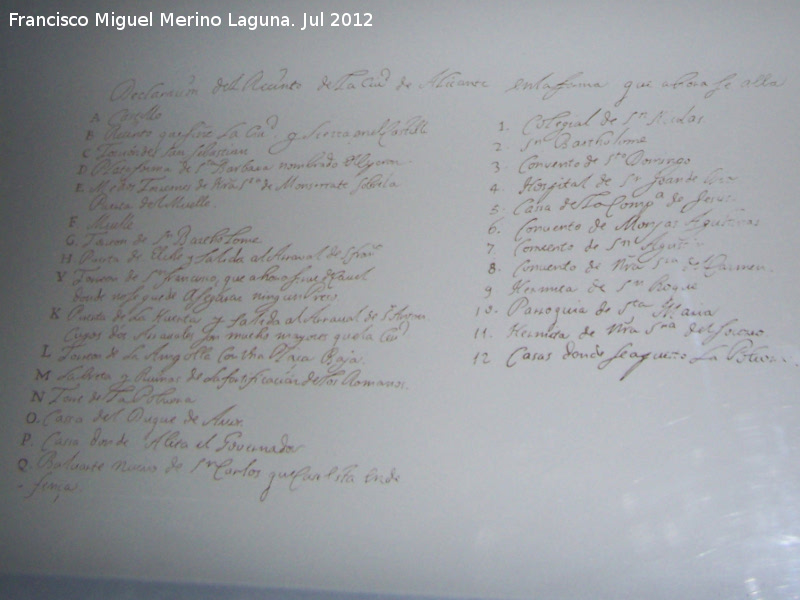 Francisco Miguel Merino Laguna. Jul 2012
Declaracion del Recinto de La Ciud de Alicante en la forma que ahora se alla
A Castillo
B Recinto que tiene La Ciud. y Sierra en el Castillo
C Torreon de San Sebastian
D Plataforma de Sta Barbara nombrado el
E Medios Torreones de Nra Sra de Monserrate sobre la
Puerta del Muelle.
F Muelle
G. Torreon de Sn Bartholome
H. Puerta de Elche y salida al Arraval de Sn Franco
Y Torreon de Sn Francisco, que ahora sirve de
donde no se puede asegurar ningun
K Puerta de La Huerta y salida al Arraval de Sn Anton.
Cuyos dos Arravales son mucho mayores que la Ciud.
L Torreon de La Ampolla con Una Plaza Baja.
M La Breta y Ruinas de la fortificacion de los Romanos.
N Torre de La Polvora
O. Cassa del Duque de Aver.
P. Cassa donde Abita el Governador
Q. Baluarte nuevo de Sn Carlos que Casi esta en de
fensa.
1. Colegial de Sn Nicolas.
2. Sn Bartholome
3. Convento de Sto Domingo
4. Hospital de Sn Joan de Dios
5. Cassa de La Compa de Jesus
6. Convento de Monjas Agustinas
7. Convento de Sn Agustin
8. Convento de Nra Sra del Carmen.
9 Hermita de Sn Roque
10. Parroquia de Sta Maria
11. Hermita de Nra Sra del Socorro
12 Casas donde se La Polvora.